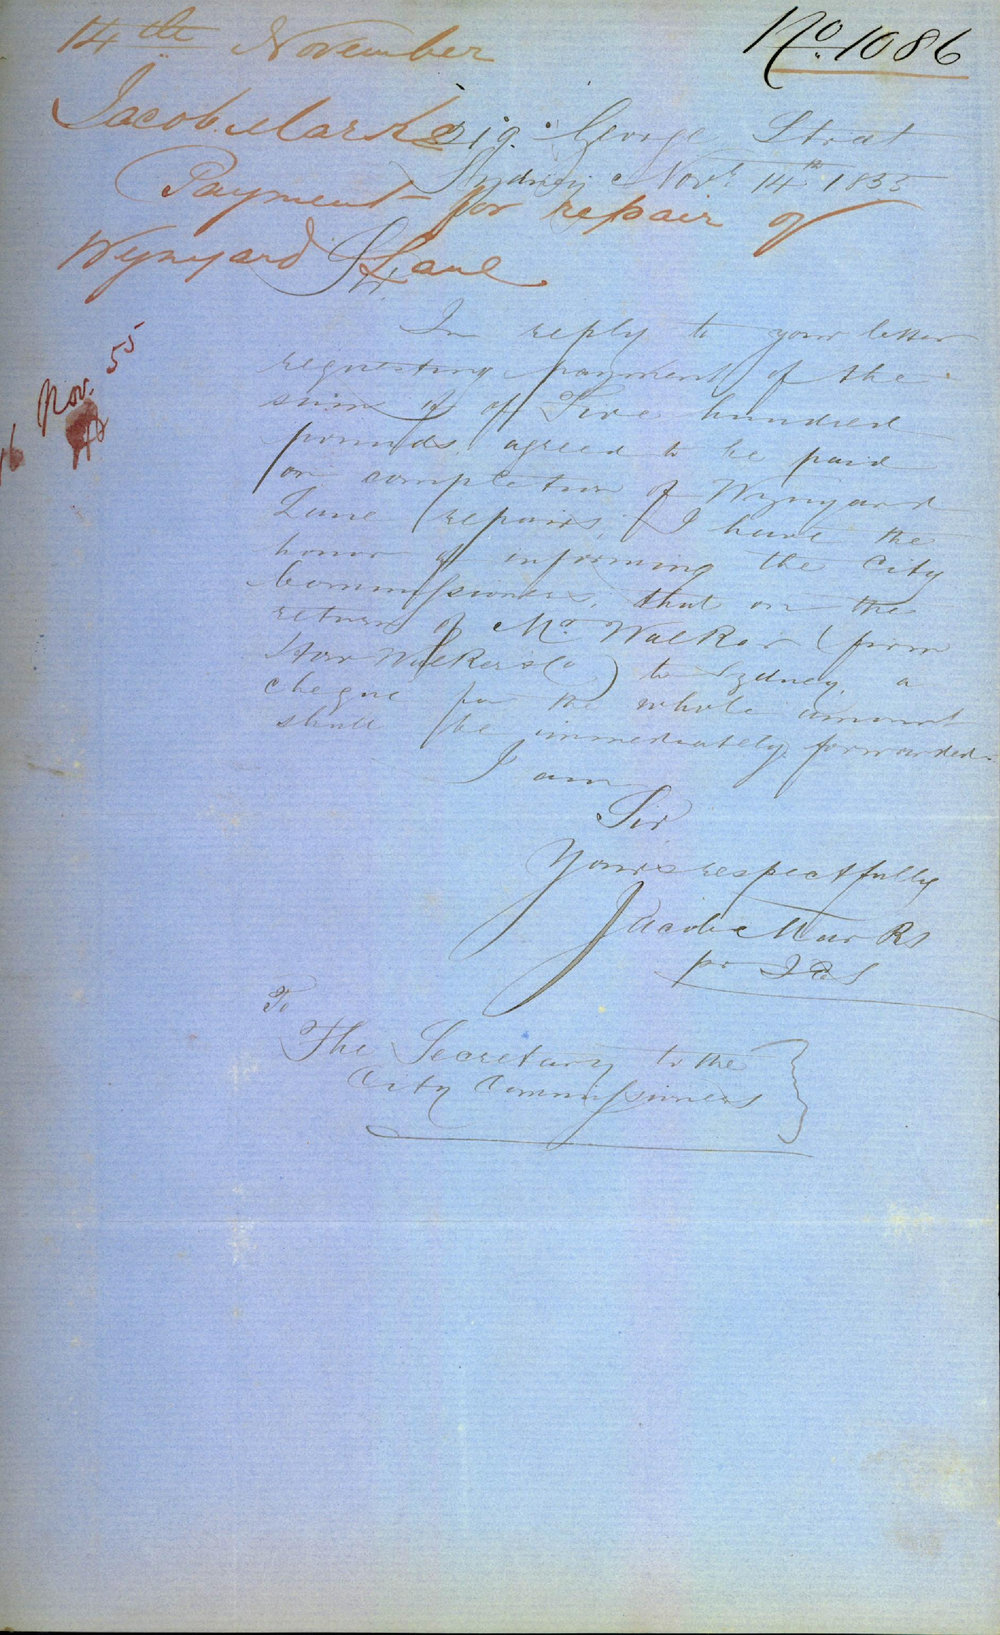 No. 1086
14th November
Jacob Marks
Payment for repair of
Wynyard Lane
519. George Street
Sydney Novr. 14th 1855
Sir
16 Nov. 55
In reply to your letter
requesting payment of the
sum of of Five hundred
pounds, agreed to be paid
on completion of Wynyard
Lane repairs, I have the
honor of informing the City
Commissioners, that on the
return of Mr Walker (from
Walker & Co) to Sydney, a
cheque for the whole amount
shall be immediately forwarded.
I am
Sir
Yours respectfully
Jacob Marks
pr
To
The Secretary to the
City Commissioners